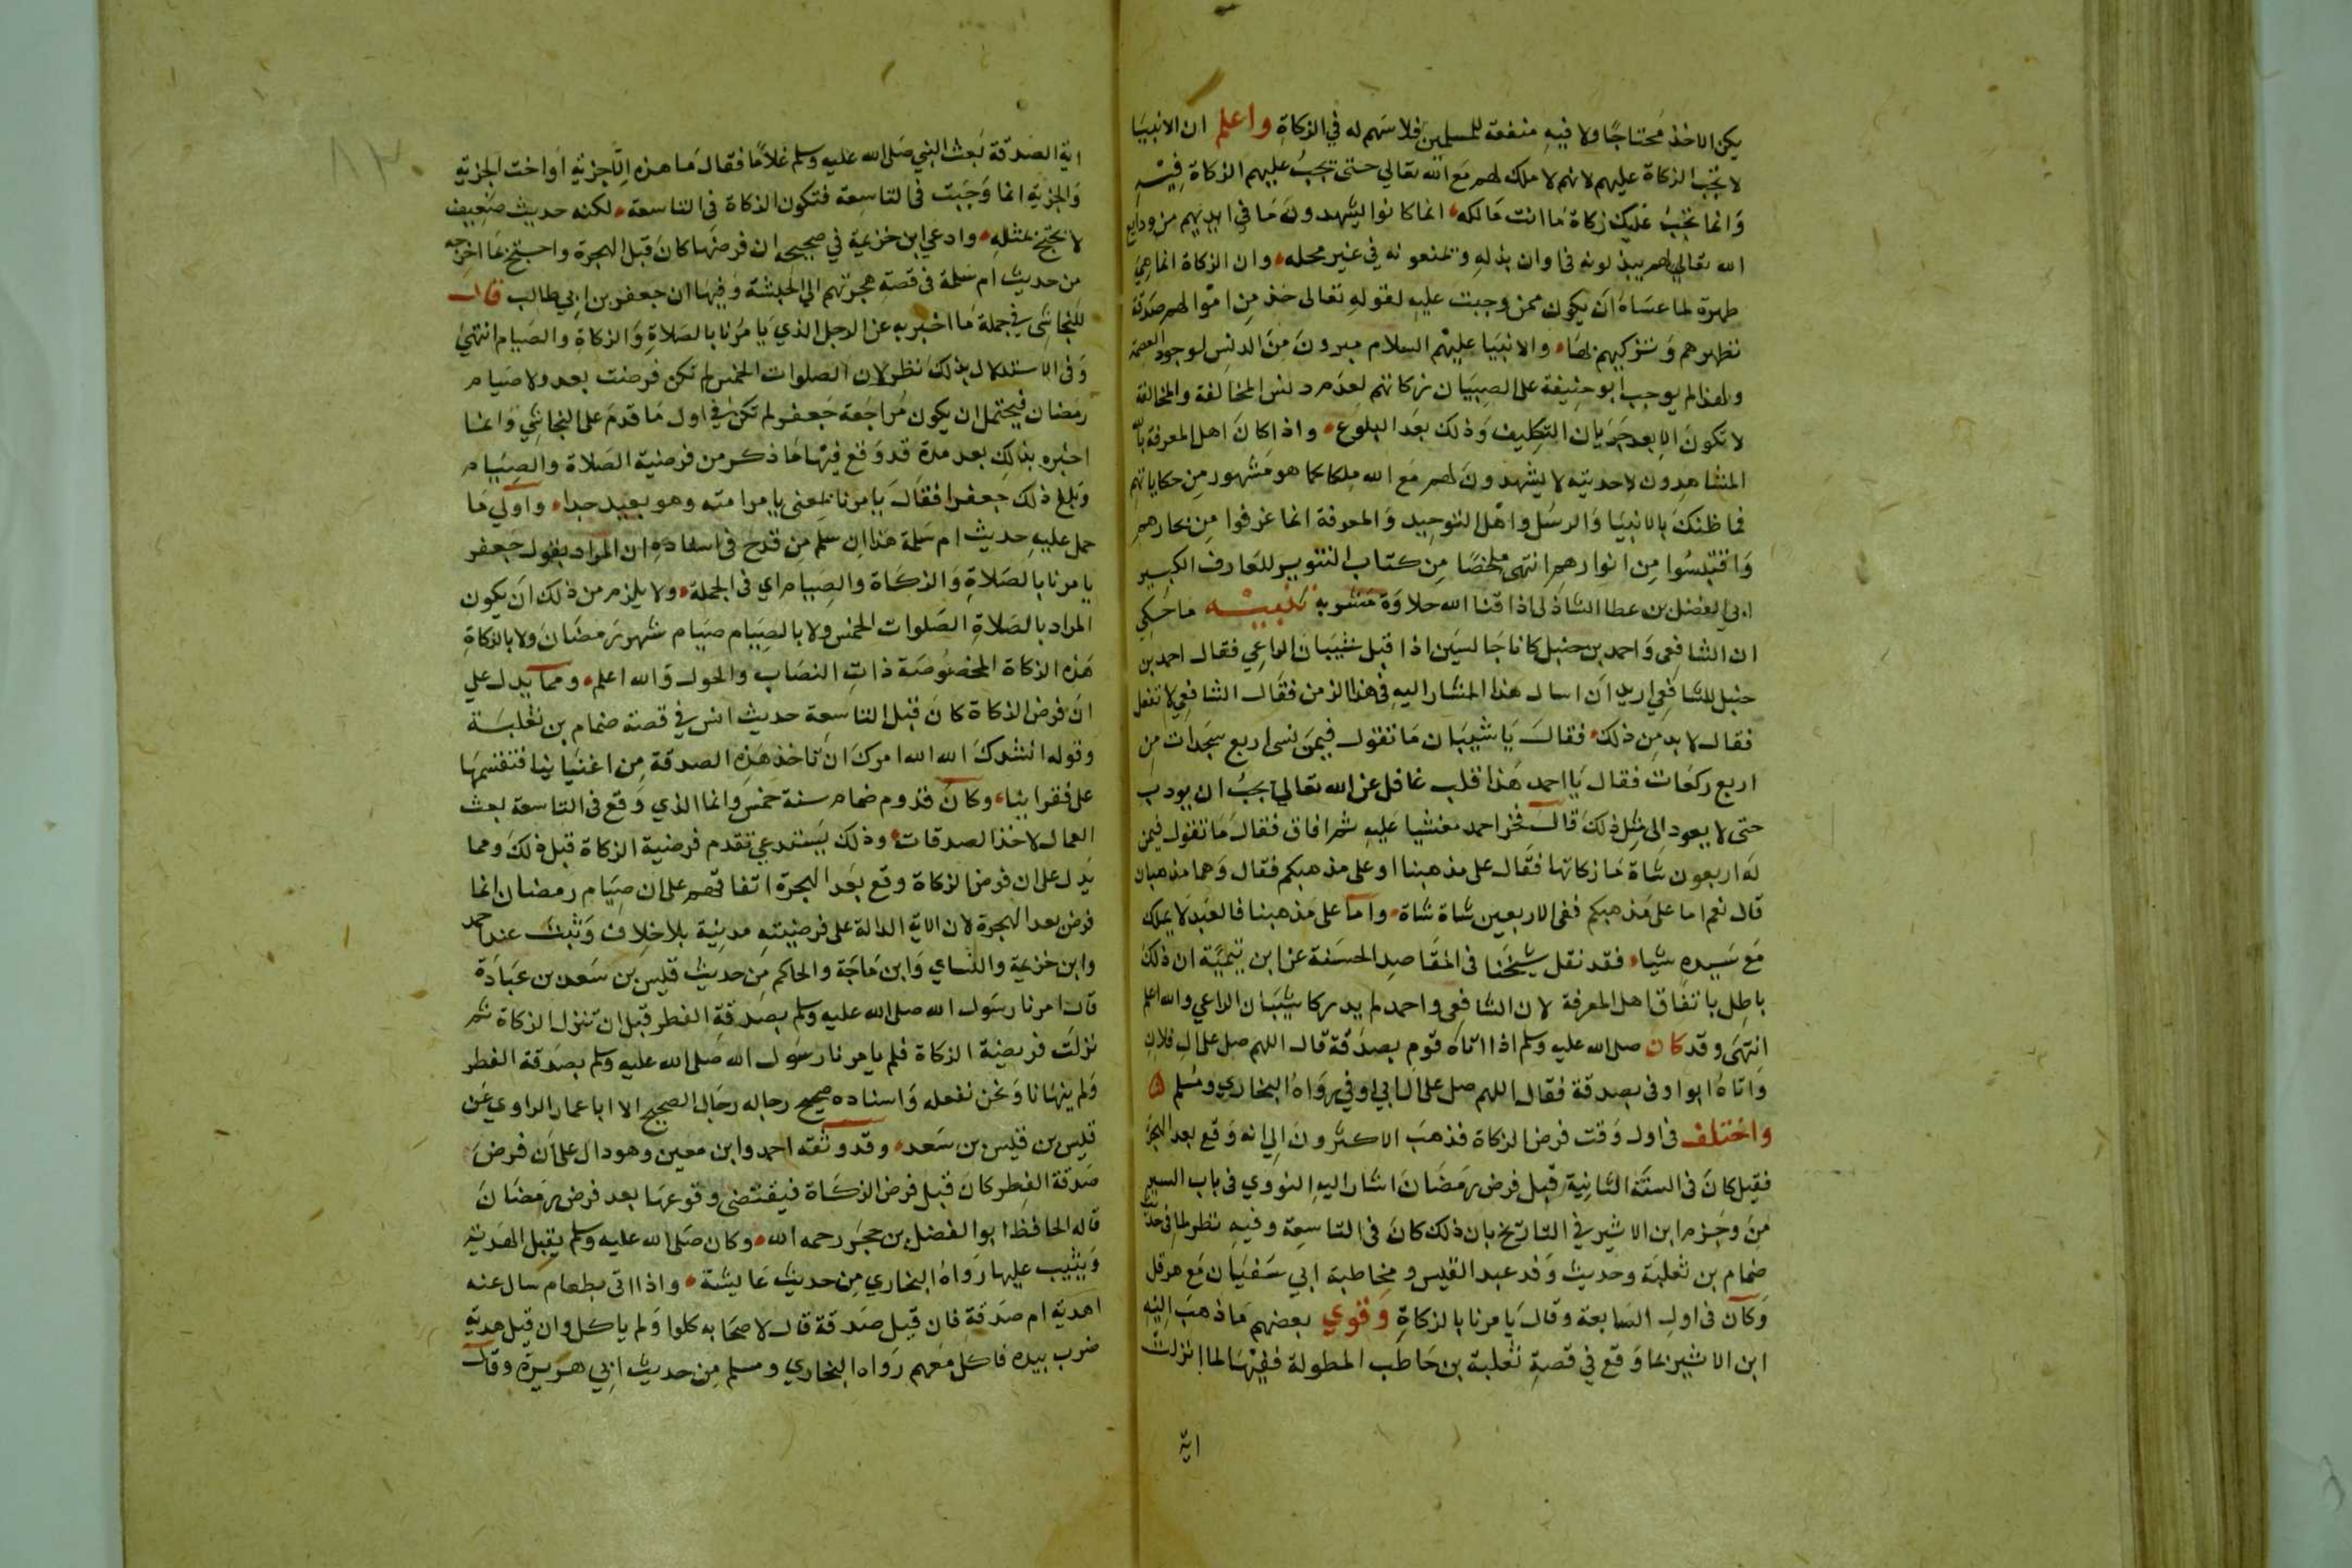 يكن الاخذ محتاجا ولا فيه منفعة للمسلمين فلا سهم له في الزكاة واعلم ان الانبيا
لا تجب الزكاة عليهم لانهم لا ملك لهم مع الله تعالي حتى تجب عليهم الزكاة فيه
وانما تجب عليك زكاة ما انت مالكه انما كانوا يشهدون ما في ايديهم من ودايع
الله تعالي لهم يبذلونه في اوان بذله ويمنعونه في غير محله وان الزكاة انما هي
طهرة لما عساه ان يكون ممن وجبت عليه لقوله تعالى خذ من اموالهم صدقة
تطهرهم وتزكيهم بها والانبيا عليهم السلام مبرون من الدنس لوجود العصمة
ولهذا لم يوجب ابو حنيفة على الصبيان زكاتهم لعدم دنس المخالفة والمخالفة
لا تكون الا بعد جريان التكليف وذلك بعد البلوغ واذا كان اهل المعرفة بالله
المشاهدون لاحديته لا يشهدون لهم مع الله ملكا كما هو مشهور من حكاياتهم
فما ظنك بالانبيا والرسل واهل التوحيد والمعرفة انما غرفوا من بحارهم
واقتبسوا من انوارهم انتهى ملخصا من كتاب التنوير للعارف الكبير
ابي الفضل بن عطا الشاذلى اذاقنا الله حلاوة مشربه تنبيه ما حكي
ان الشافعى واحمد بن حنبل كانا جالسين اذ اقبل شيبان الراعي فقال احمد بن
حنبل للشافعي اريد ان اسال هذا المشار اليه في هذا الزمن فقال الشافعي لا تفعل
فقال لا بد من ذلك فقال يا شيبان ما تقول فيمن نسى اربع سجدات من
اربع ركعات فقال يا احمد هذا قلب غافل عن الله تعالى يجب ان يودب
حتى لا يعود الى مثل ذلك قال فخر احمد مغشيا عليه ثم افاق فقال ما تقول فيمن
له اربعون شاة ما زكاتها فقال على مذهبنا او على مذهبكم فقال وهما مذهبان
قال نعم اما على مذهبكم ففى الاربعين شاة شاة واما على مذهبنا فالعبد لا يملك
مع سيده شيا فقد نقل شيخنا فى المقاصد الحسنة عن ابن تيمية ان ذلك
باطل باتفاق اهل المعرفة لان الشافعى واحمد لم يدركا شيبان الراعي والله اعلم
انتهى وقد كان صلى الله عليه وسلم اذا اتاه قوم بصدقة قال اللهم صل على ال فلان
واتاه ابو اوفى بصدقة فقال اللهم صل على ال ابي اوفي رواه البخاري ومسلم ه
واختلف فى اول وقت فرض الزكاة فذهب الاكثرون الي انه وقع بعد الهجرة
فقيل كان فى السنة الثانية قبل فرض رمضان اشار اليه النووي فى باب السير
من وجزم ابن الاثير في التاريخ بان ذلك كان فى التاسعة وفيه نظر لما فى حديث
ضمام بن ثعلبة وحديث وفد عبد القيس ومخاطبة ابي سفيان مع هرقل
وكان فى اول السابعة وقال يامرنا بالزكاة وقوي بعضهم ما ذهب اليه
ابن الاثير بما وقع في قصة ثعلبة بن حاطب المطولة ففيها لما انزلت
اية
اية الصدقة بعث النبي صلى الله عليه وسلم غلاما فقال ما هذه الا جزية او اخت الجزية
والجزية انما وجبت فى التاسعة فتكون الزكاة فى التاسعة لكنه حديث ضعيف
لا يحتج بمثله وادعي ابن خزيمة في صحيحه ان فرضها كان قبل الهجرة واحتج بما اخرجه
من حديث ام سلمة فى قصة هجرتهم الي الحبشة وفيها ان جعفر بن ابي طالب قال
للنجاشى في جملة ما اخبر به عن الرجل الذي يامرنا بالصلاة والزكاة والصيام انتهي
وفى الاستدلال بذلك نظر لان الصلوات الخمس لم تكن فرضت بعد ولا صيام
رمضان فيحتمل ان يكون مراجعة جعفر لم تكن في اول ما قدم على النجاشي وانما
اخبره بذلك بعد مدة قد وقع فيها ما ذكر من فرضية الصلاة والصيام
وبلغ ذلك جعفرا فقال يامرنا بمعنى يامر امته وهو بعيد جدا واولي ما
حمل عليه حديث ام سلمة هذا ان سلم من قدح في اسناده ان المراد بقول جعفر
يامرنا بالصلاة والزكاة والصيام اي في الجملة ولا يلزم من ذلك ان يكون
المراد بالصلاة الصلوات الخمس ولا بالصيام صيام شهر رمضان ولا بالزكاة
هذه الزكاة المخصوصة ذات النصاب والحول والله اعلم ومما يدل علي
ان فرض الزكاة كان قبل التاسعة حديث انس في قصة ضمام بن ثعلبة
وقوله انشدك الله الله امرك ان تاخذ هذه الصدقة من اغنياينا فتقسمها
على فقراينا وكان قدوم ضمام سنة خمس وانما الذي وقع فى التاسعة بعث
العمال لاخذ الصدقات وذلك يستدعي تقدم فرضية الزكاة قبل ذلك ومما
يدل على ان فرض الزكاة وقع بعد الهجرة اتفاقهم على ان صيام رمضان انما
فرض بعد الهجرة لان الاية الدالة على فرضيته مدنية بلا خلاف وثبت عند احمد
وابن خزيمة والنساي وابن ماجة والحاكم من حديث قيس بن سعد بن عبادة
قال امرنا رسول الله صلى الله عليه وسلم بصدقة الفطر قبل ان تنزل الزكاة ثم
نزلت فريضة الزكاة فلم يامرنا رسول الله صلى الله عليه وسلم بصدقة الفطر
ولم ينهانا ونحن نفعله واسناده صحيح رجاله رجال الصحيح الا ابا عمار الراوي عن
قيس بن قيس بن سعد وقد وثقه احمد وابن معين وهو دال على ان فرض
صدقة الفطر كان قبل فرض الزكاة فيقتضى وقوعها بعد فرض رمضان
قاله الحافظ ابو الفضل بن حجر رحمه الله وكان صلى الله عليه وسلم يقبل الهدية
ويثيب عليها رواه البخاري من حديث عايشة واذا اتى بطعام سال عنه
اهدية ام صدقة فان قيل صدقة قال لاصحابه كلوا ولم ياكل وان قيل هدية
ضرب بيده فاكل معهم رواه البخاري ومسلم من حديث ابي هريرة وقال